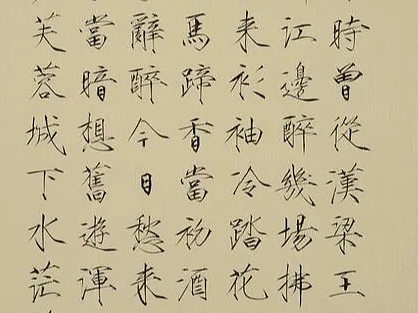 時曾從漢梁王
江邊醉幾場拂
来衫袖冷踏花
馬蹄香當初酒
辭醉今日愁来
當暗想舊遊渾
芙蓉城下水茫